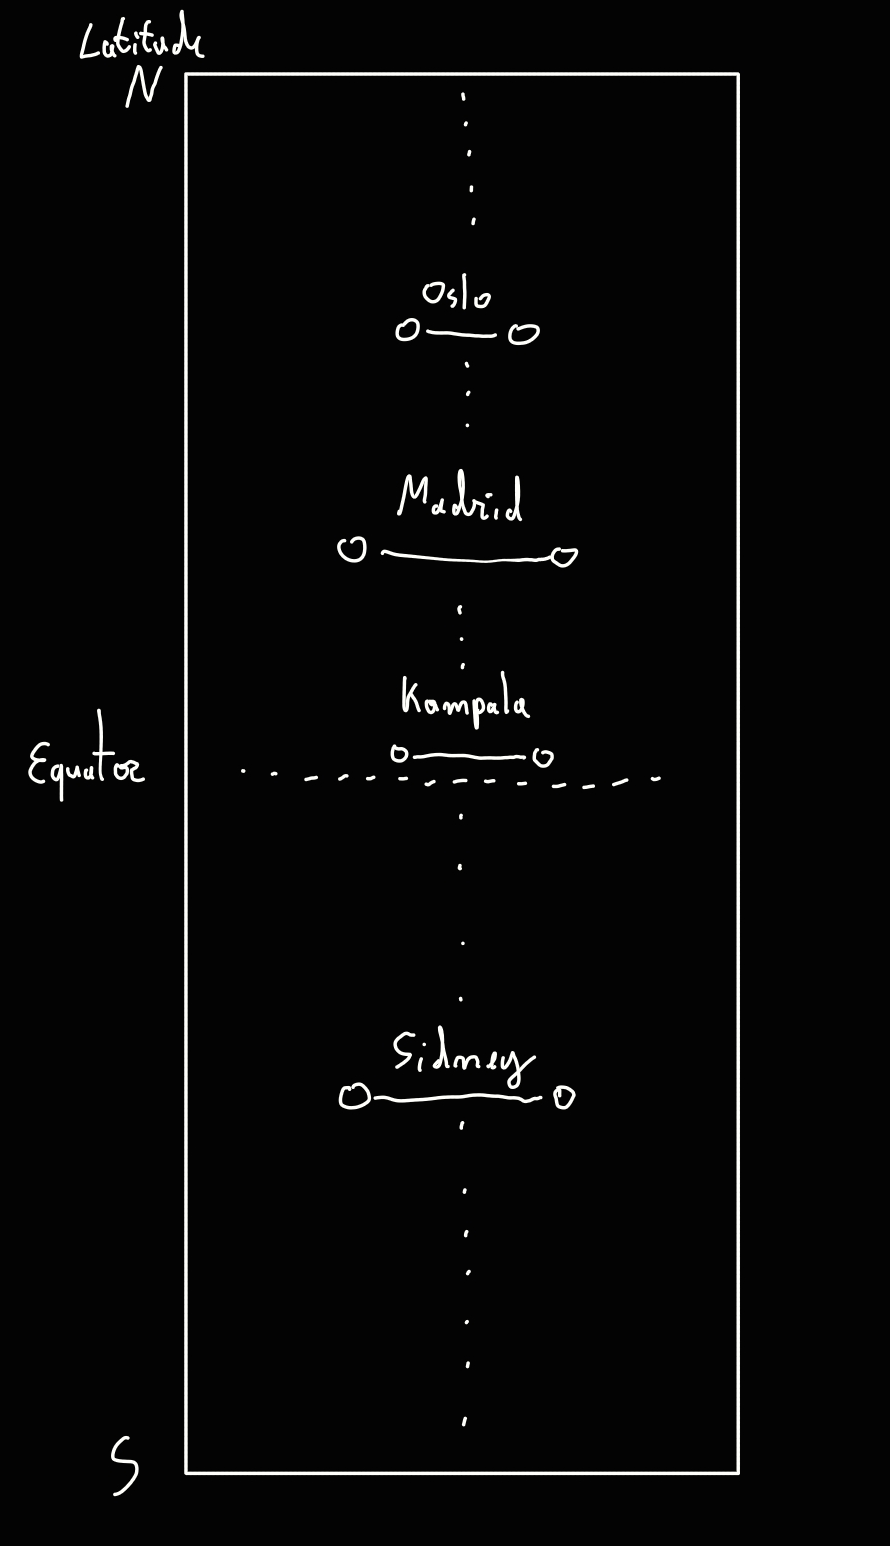 Latitude
N
Oslo
Madrid
Kampala
Equator
Sidney
S